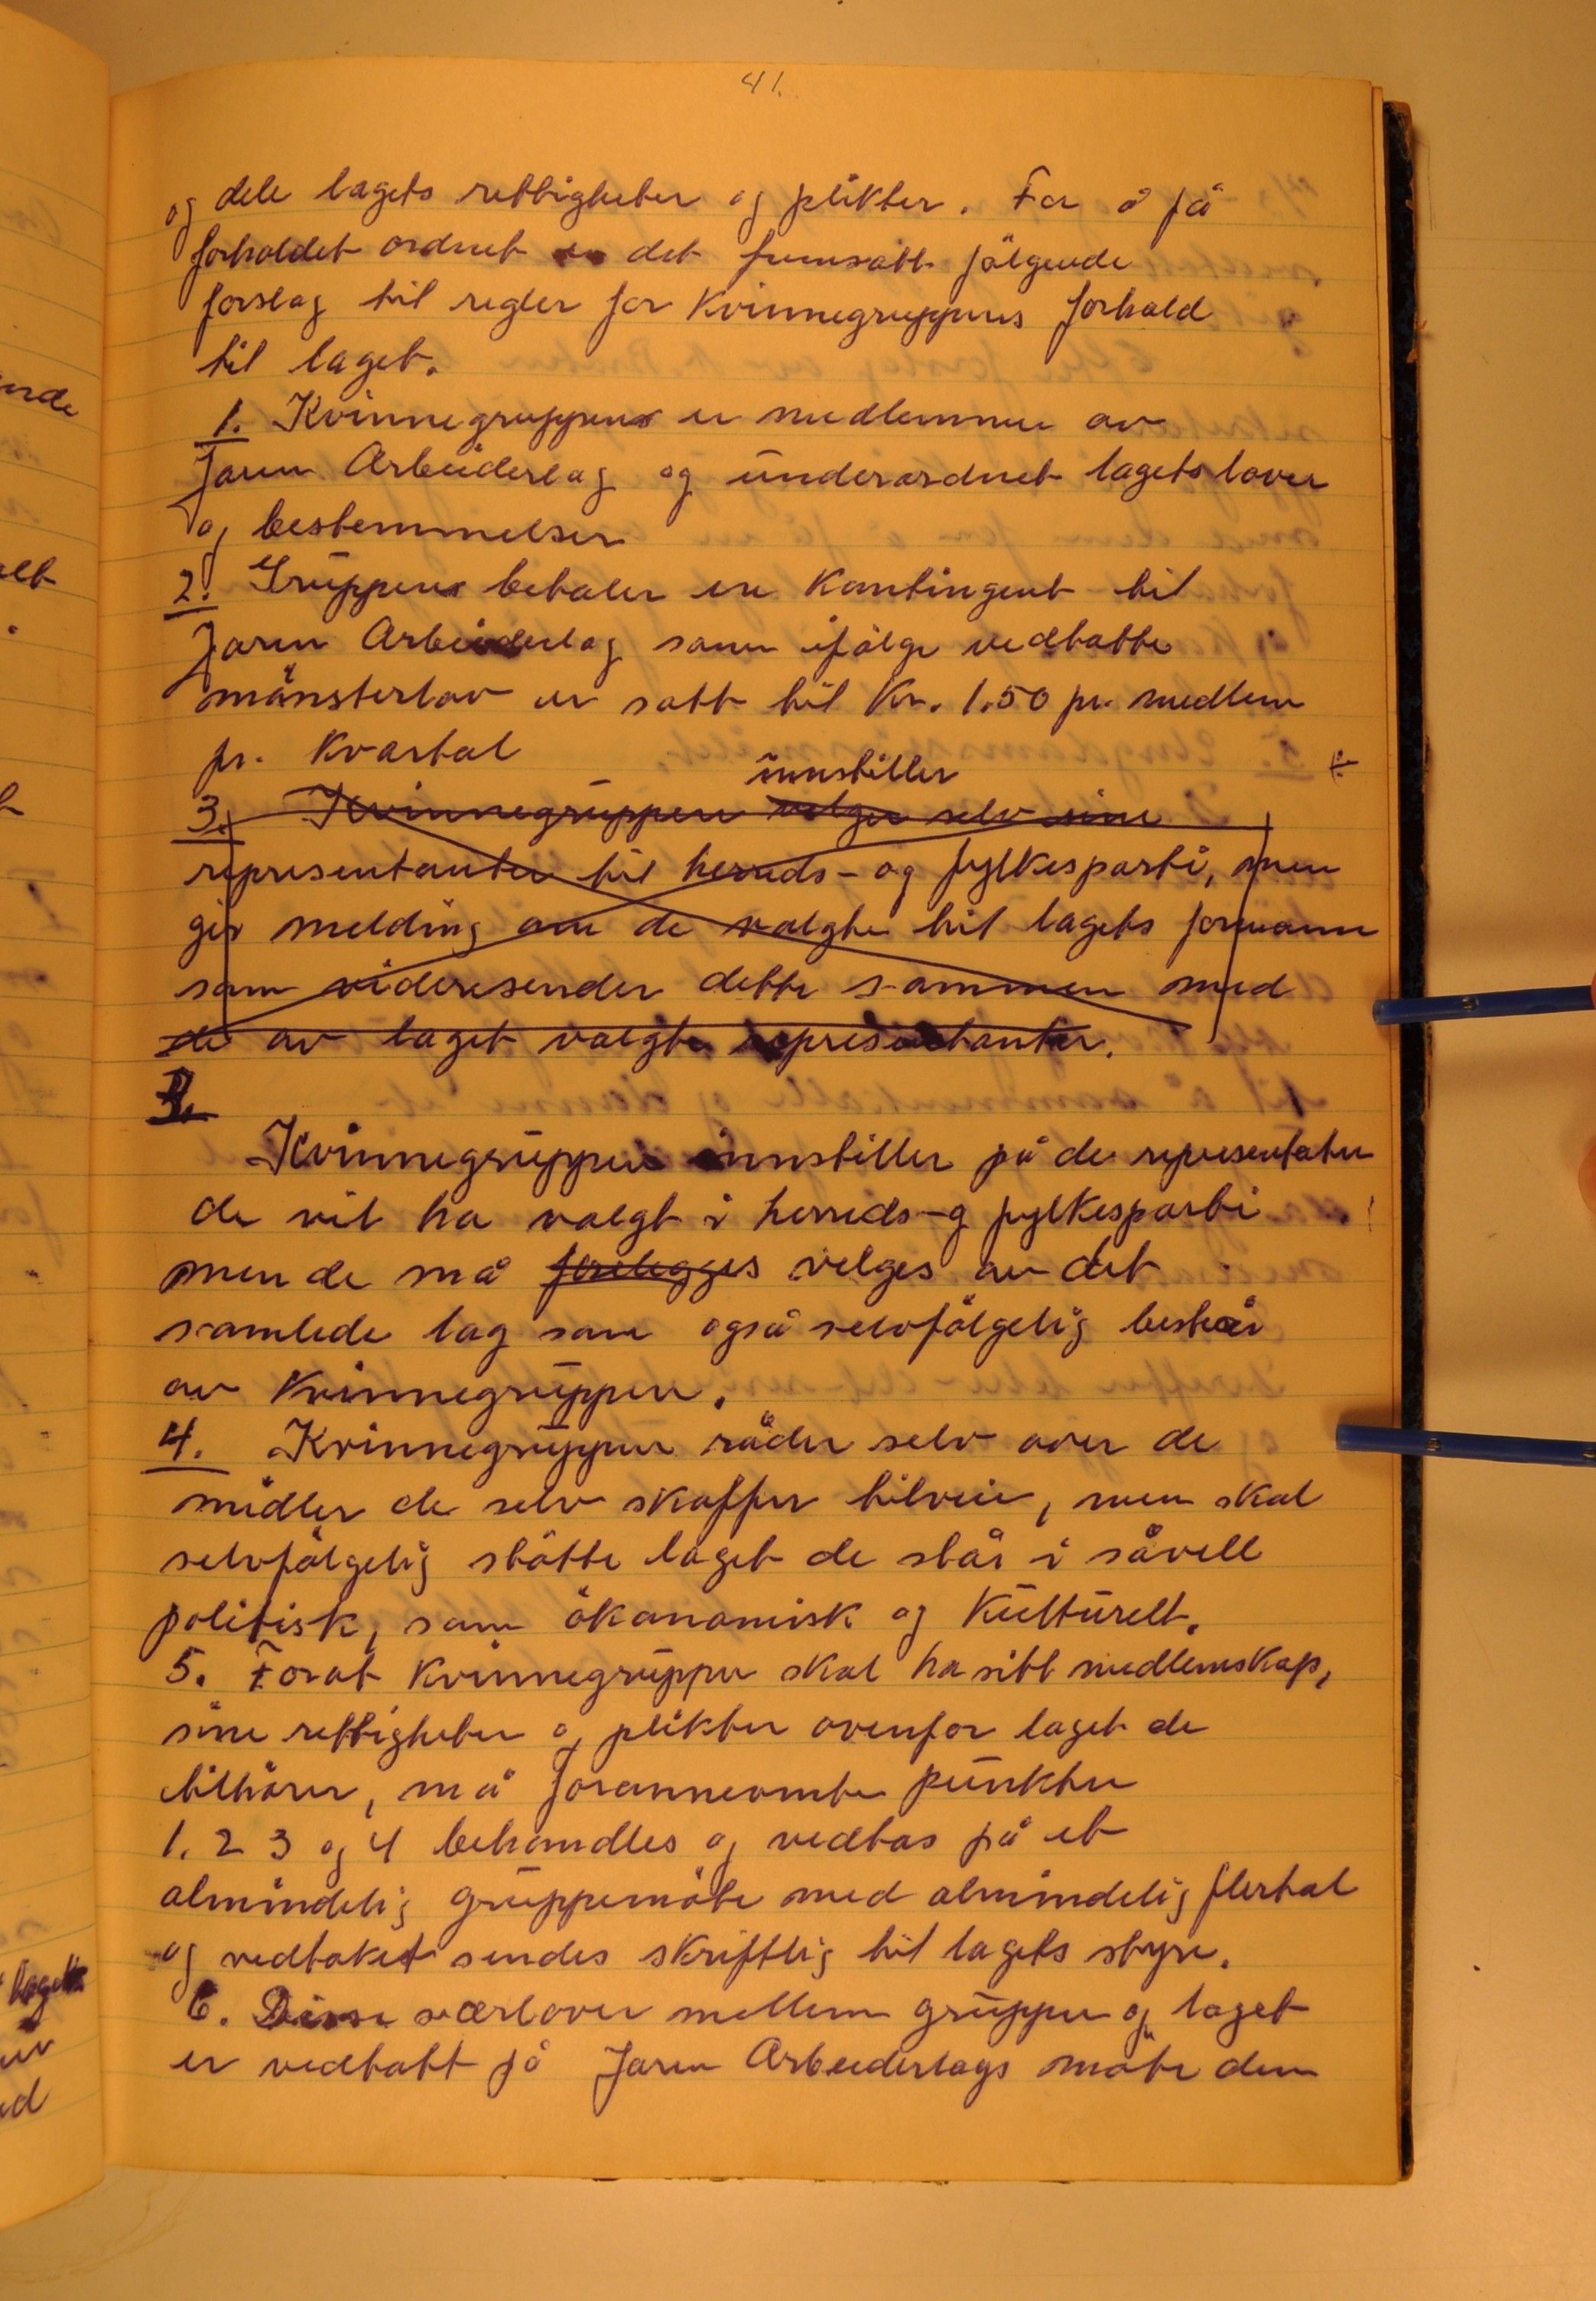 41.
og dele lagets rettigheter og plikter. For å få
forholdet ordnet er det fremsatt følgende
forslag til regler for Kvinnegruppens forhold
til laget.
1. Kvinnegruppen er medlemmer av
Jaren Arbeiderlag og underordnet lagets lover
og bestemmelser
2. Gruppen betaler en Kontingent til
Jaren Arbeiderlag som ifølge vedtatte
mønsterlov er satt til Kr. 1.50 pr. medlem
pr. Kvartal
innstiller
3. Kvinnegruppen velger selv sine
representanter til herreds- og fylkesparti, men
gir melding om de valgte til lagets formann
som videresender dette sammen med
de av laget valgte representanter.
3.
Kvinnegruppen innstiller på de representater
de vil ha valgt i herreds- og fylkesparti
men de må forelegges velges av det
samlede lag som også selvfølgelig består
av Kvinnegruppen.
4. Kvinnegruppen råder selv over de
midler de selv skaffer tilveie, men skal
selvfølgelig støtte laget de står i såvell
politisk, som økonomisk og Kulturelt.
5. Forat Kvinnegruppen skal ha sitt medlemskap,
sine rettigheter og plikter ovenfor laget de
tilhører, må forannevnte punkter
1. 2 3 og 4 behandles og vedtas på et
almindelig gruppemøte med almindelig flertal
og vedtaket sendes skriftlig til lagets styre.
6. Disse særlover mellem gruppen og laget
er vedtatt på Jaren Arbeiderlags møte den